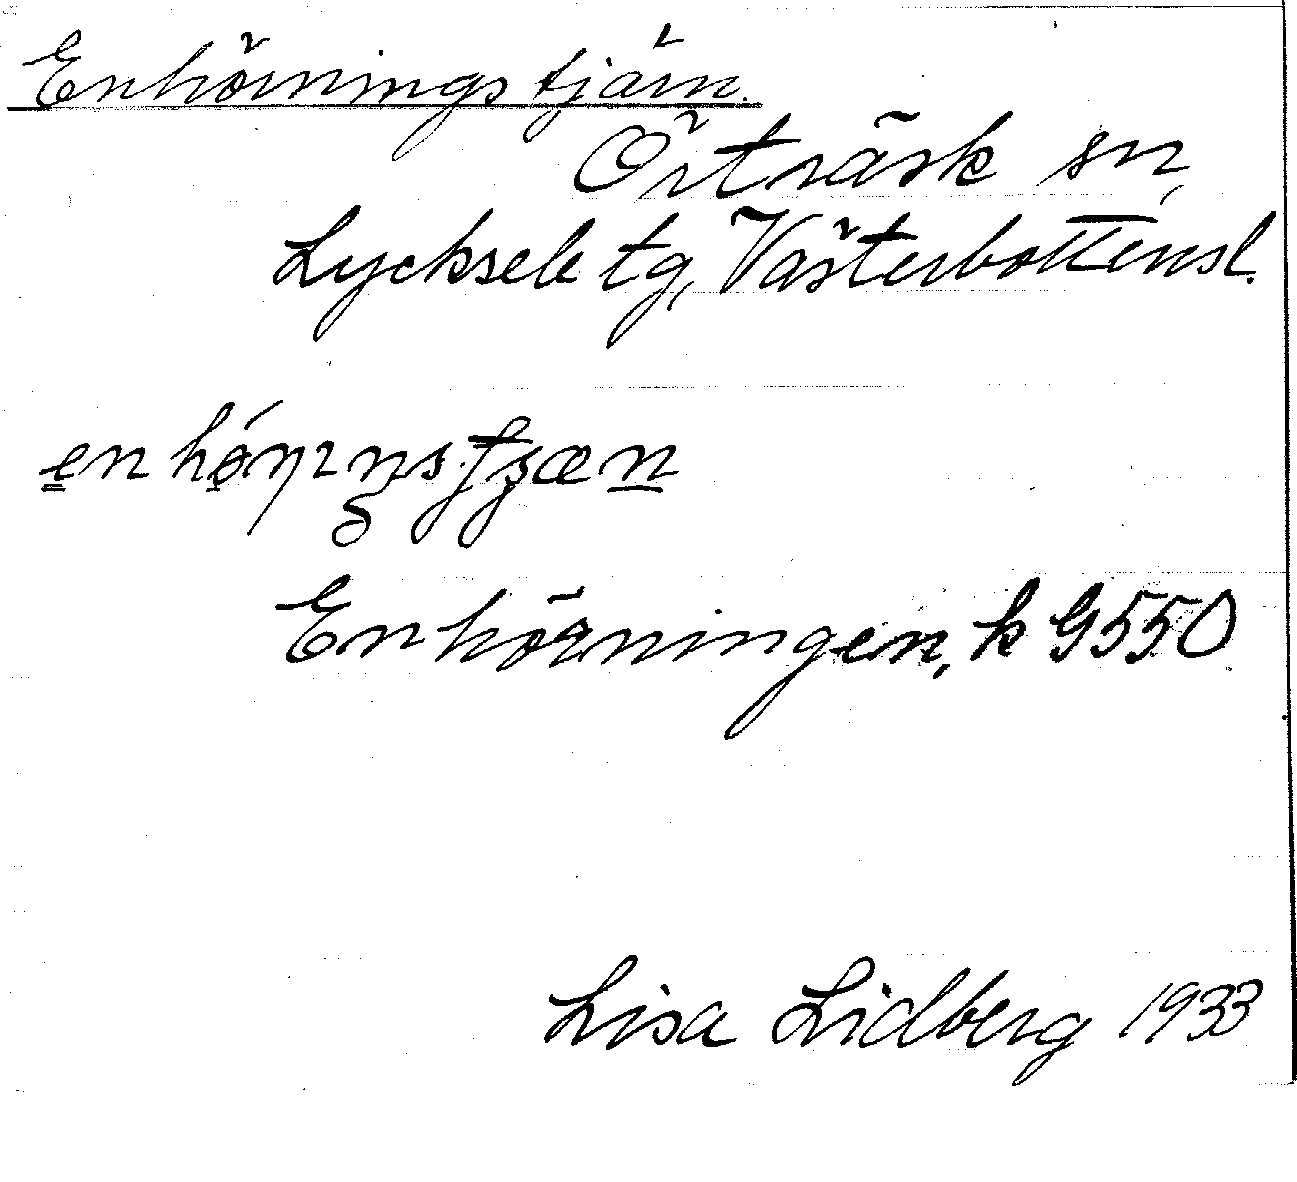 Enhörningstjärn.
Örträsk sn,
Lycksele tg, Västerbottensl.
Enhörningen, k G550
Lisa Lidberg 1933